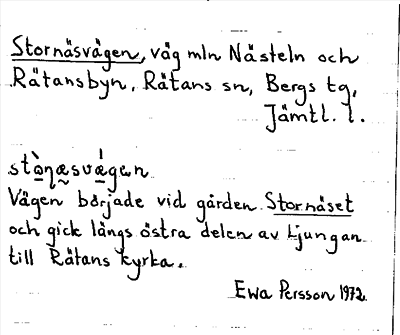 Stornäsvägen, väg mln Nästeln och
Rätansbyn, Rätans sn, Bergs tg,
Jämtl. l.
stò̱ɳæ̰svá̱gen
Vägen började vid gården Stornäset
och gick längs östra delen av Ljungan
till Rätans kyrka.
Ewa Persson 1972.